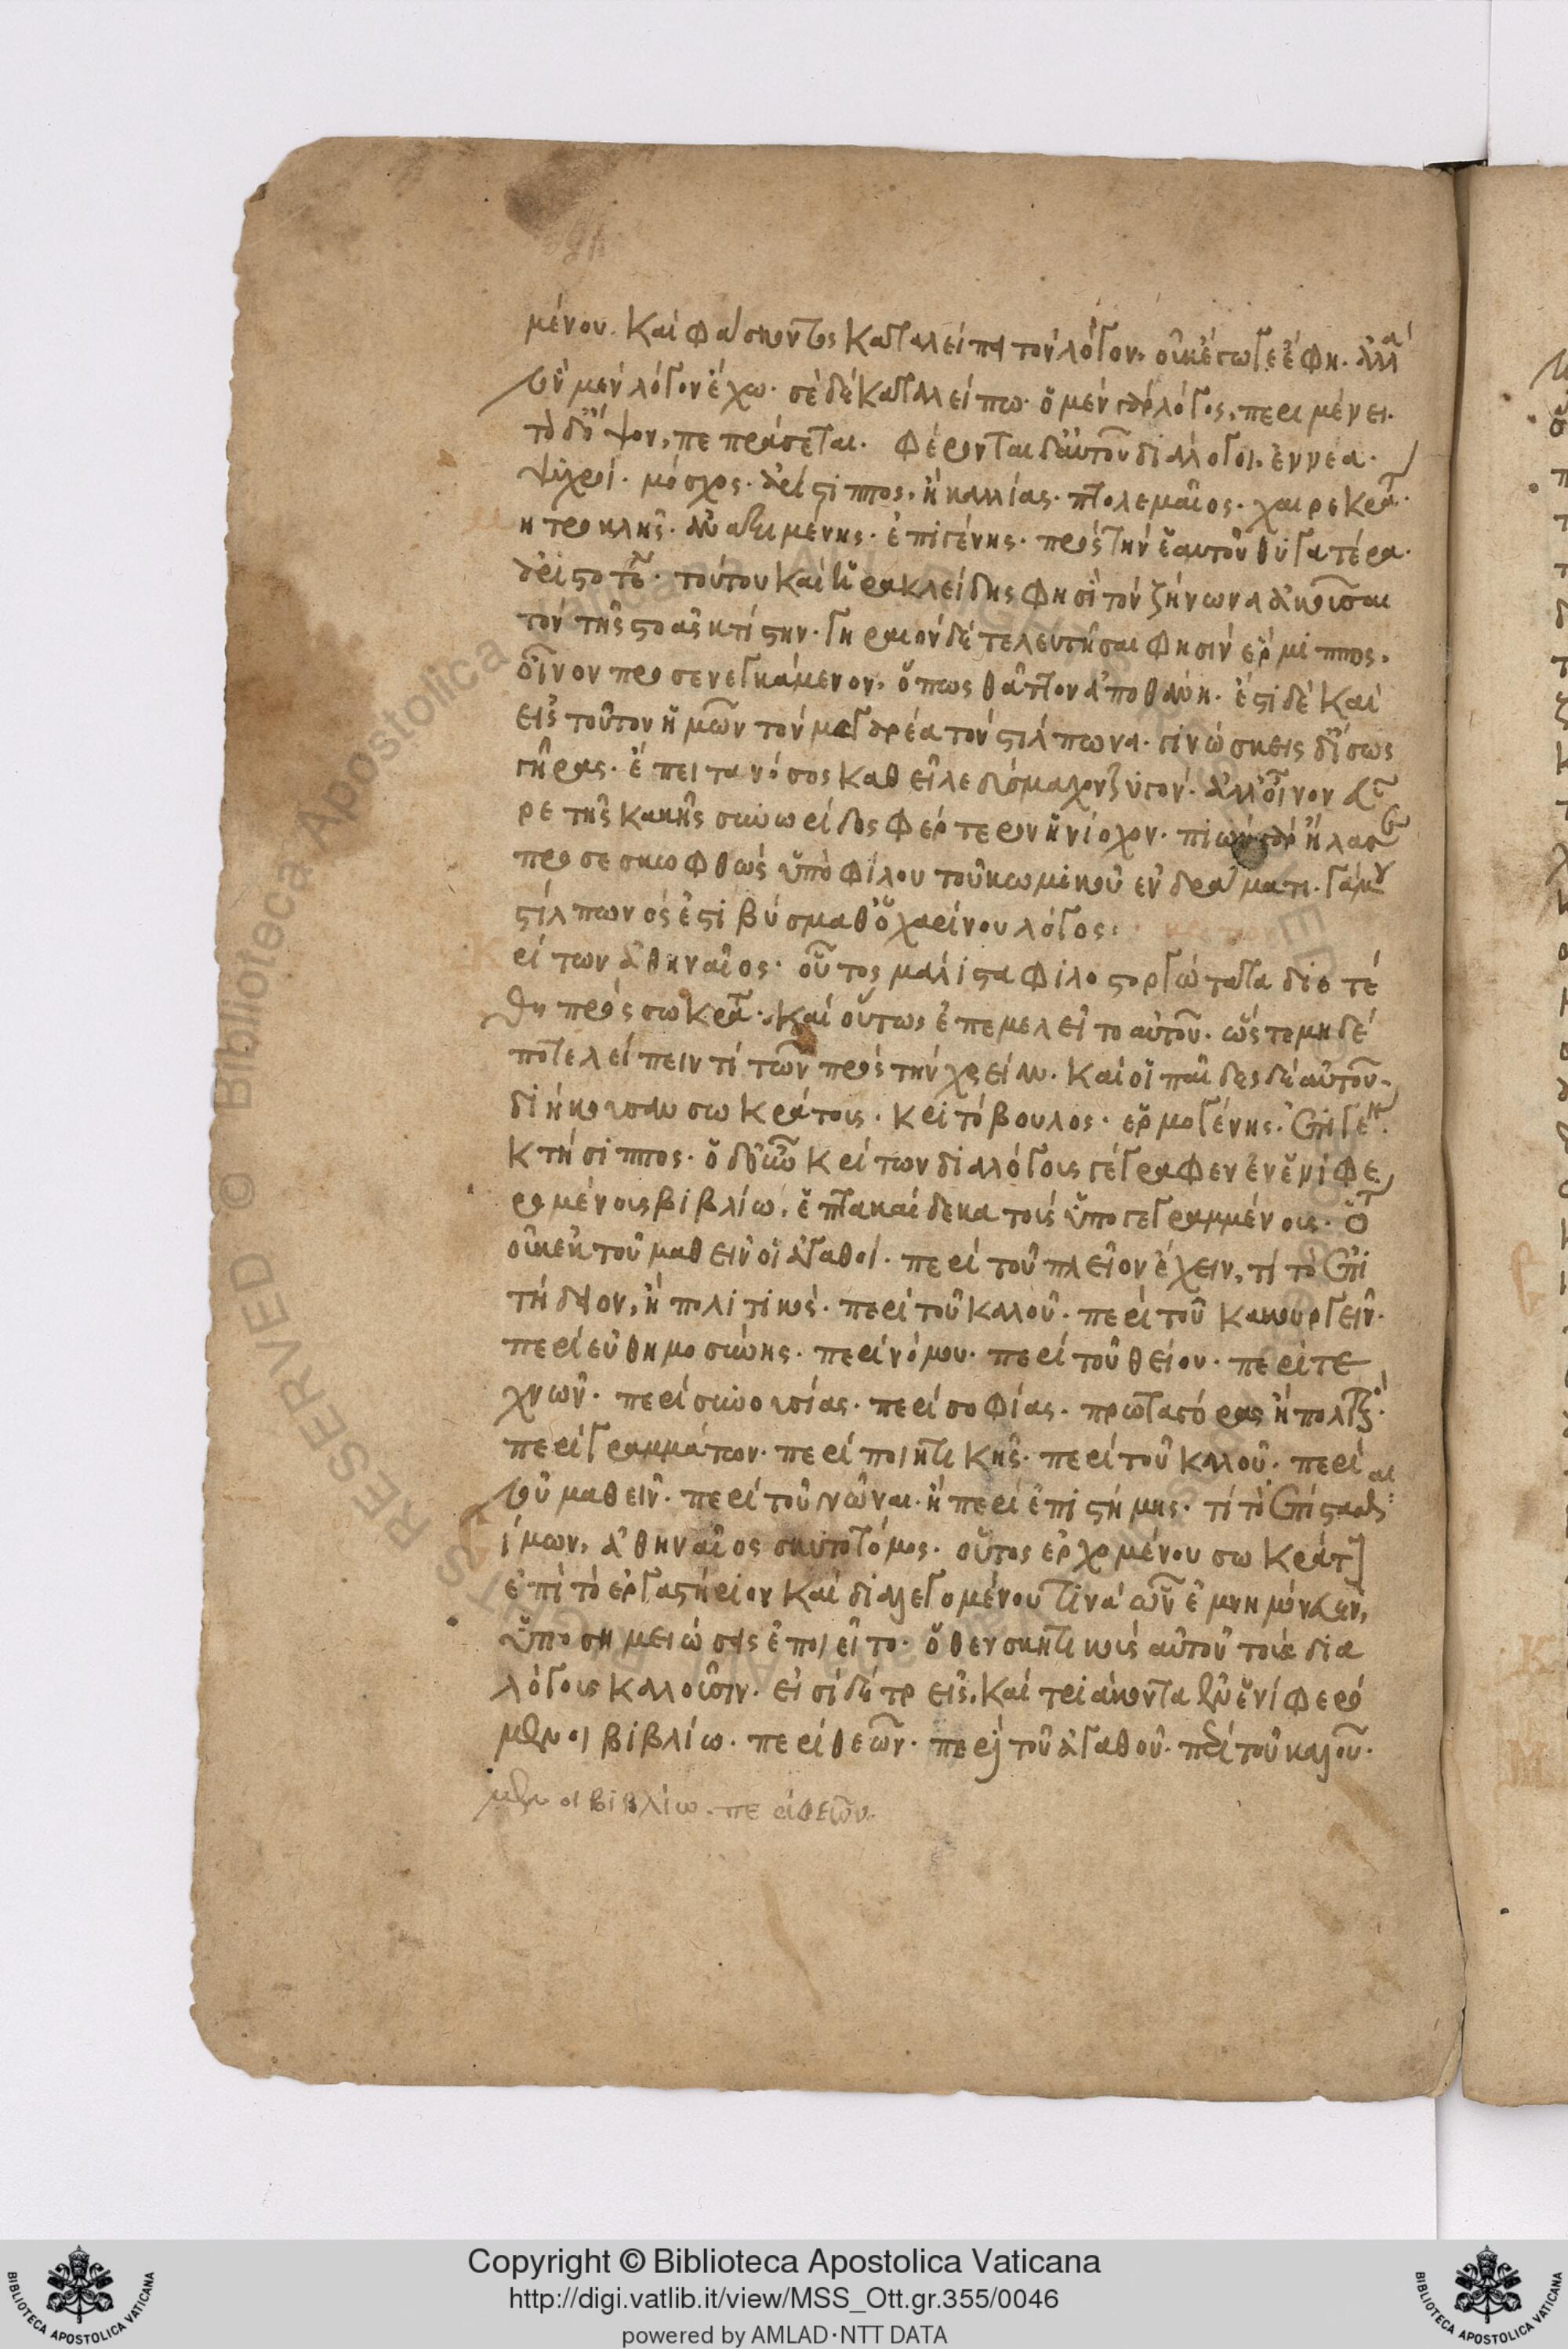 μένου. καὶ φάσκοντος καταλείπει τὸν λόγον, οὐκ ἔγωγε ἔφη. ἀλλὰ
τὸν μὲν λόγον ἔχω. σὲ δὲ καταλείπω. ὁ μὲν γὰρ λόγος, περιμένει.
τὸ δ' ὄψον, πεπράσεται. φέρονται δ' αὐτοῦ διάλογοι ἐννέα.
ψυχροί. μόσχος. ἀρίστιππος, ἢ καλλίας. πτολεμαῖος. χαιρεκρά.
μητροκλῆς. ἀναξιμένης. ἐπιγένης. πρὸς τὴν ἑαυτοῦ θυγατέρα.
ἀριστοτέ. τούτου καὶ ἡρακλείδης φησὶ τὸν ζήνωνα ἀκοῦσαι
τὸν τῆς στοᾶς κτίστην. γηραιὸν δὲ τελευτῆσαι φησὶν ἕρμιππος,
οἶνον προσενεγκάμενον, ὅπως θᾶττον ἀποθάνη. ἔστι δὲ καὶ
εἰς τοῦτον ἡμῶν τὸν μεγαρέα τὸν στίλπωνα. γινώσκεις δ' ἴσως
γῆρας. ἔπειτα νόσος καθεῖλε δύσμαχον ζυγόν. ἀλλ' οἶνον εὗ
ρε τῆς κακῆς συνωρίδος φέρτερον ἡνίοχον. πιὼν γὰρ ἤλασε
προσεσκώφθως ὑπὸ φίλου τοῦ κωμικοῦ ἐν δράματι. γάμου
στίλπωνός ἐστι βύσμαθ' ὁ χαρίνου λόγος:
ρίτων ἀθηναῖος. οὗτος μάλιστα φιλοστοργώτατα διετέ
θη πρὸς σωκρά. καὶ οὕτως ἐπεμελεῖτο αὐτοῦ. ὥστε μηδέ
ποτε λείπειν τί τῶν πρὸς τὴν χρείαν. καὶ οἱ παῖδες δὲ αὐτοῦ
διήκουσαν σωκράτους. κριτόβουλος. ἑρμογένης. ἐπιγέν.
κτήσιππος. ὁ δ' οὖν κρίτων διαλόγους γέγραφεν ἐν ἑνὶ φε
ρομένοις βιβλίω, ἑπτακαίδεκα τοὺς ὑπογεγραμμένοις. ὅτι
οὐκ ἐκ τοῦ μαθεῖν οἱ ἀγαθοί. περὶ τοῦ πλεῖον ἔχειν, τί τὸ ἐπι
τήδειον, ἢ πολιτικός. περὶ τοῦ καλοῦ. περὶ τοῦ κακουργεῖν.
περὶ εὐθημοσύνης. περὶ νόμου. περὶ τοῦ θείου. περὶ τε
χνῶν. περὶ συνουσίας. περὶ σοφίας. πρωταγόρας ἢ πολιτικός.
περὶ γραμμάτων. περὶ ποιητικῆς. περὶ τοῦ καλοῦ. περὶ
τοῦ μαθεῖν. περὶ τοῦ γνῶναι. ἢ περὶ ἐπιστήμης. τί τὸ ἐπίστασθαι:
ίμων, ἀθηναῖος σκυτοτόμος. οὗτος ἐρχομένου σωκράτ
ἐπὶ τὸ ἐργαστήριον καὶ διαλεγομένου τινὰ ὧν ἐμνημόνευεν,
ὑποσημειώσεις ἐποιεῖτο. ὅθεν σκυτικοὺς αὐτοῦ τοὺς δια
λόγους καλοῦσιν. εἰσὶ δὲ τρεῖς, καὶ τριάκοντα ἐν ἑνὶ φερό
μενοι βιβλίω. περὶ θεῶν. περὶ τοῦ ἀγαθοῦ. περὶ τοῦ καλοῦ.
μενοι βιβλίω. περὶ θεῶν.
Copyright © Biblioteca Apostolica Vaticana
http://digi.vatlib.it/view/MSS_Ott.gr.355/0046
powered by AMLAD·NTT DATA